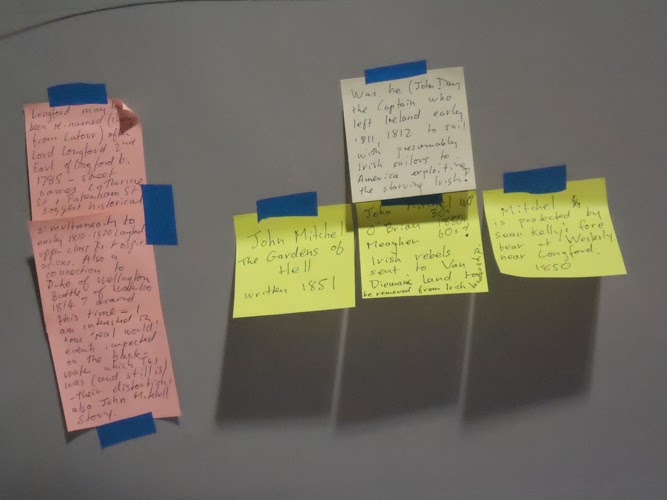 Longford may
been re-named (
from Latour) after
Lord Longford 2nd
Earl of Longford b.
1785 - street
names Catherine
St, Pakenham St
suggest historical
simultaneity to
early 1810-1820
upper
place. Also a
connection to
Duke of Wellington
Battle of Waterloo
1814? around
this time - I
am interested in
how 'real world'
events impacted
on the back-
water which
was (and still is)
their distortions
also John Mitchell
Story.
John Mitchel
The Gardens of
Hell
written 1851
Was he (John Day
the Captain who
left Ireland early
1811, 1812 to sail
with presumably
Irish sailors to
America exploiting
the starving Irish?
John
O'Brian
Meagher
Irish rebels
sent to Van
Diemans land to
be removed from Irish
Mitchel
is protected by
sean Kelly's fore
bear at Westerly
near Longford.
1850